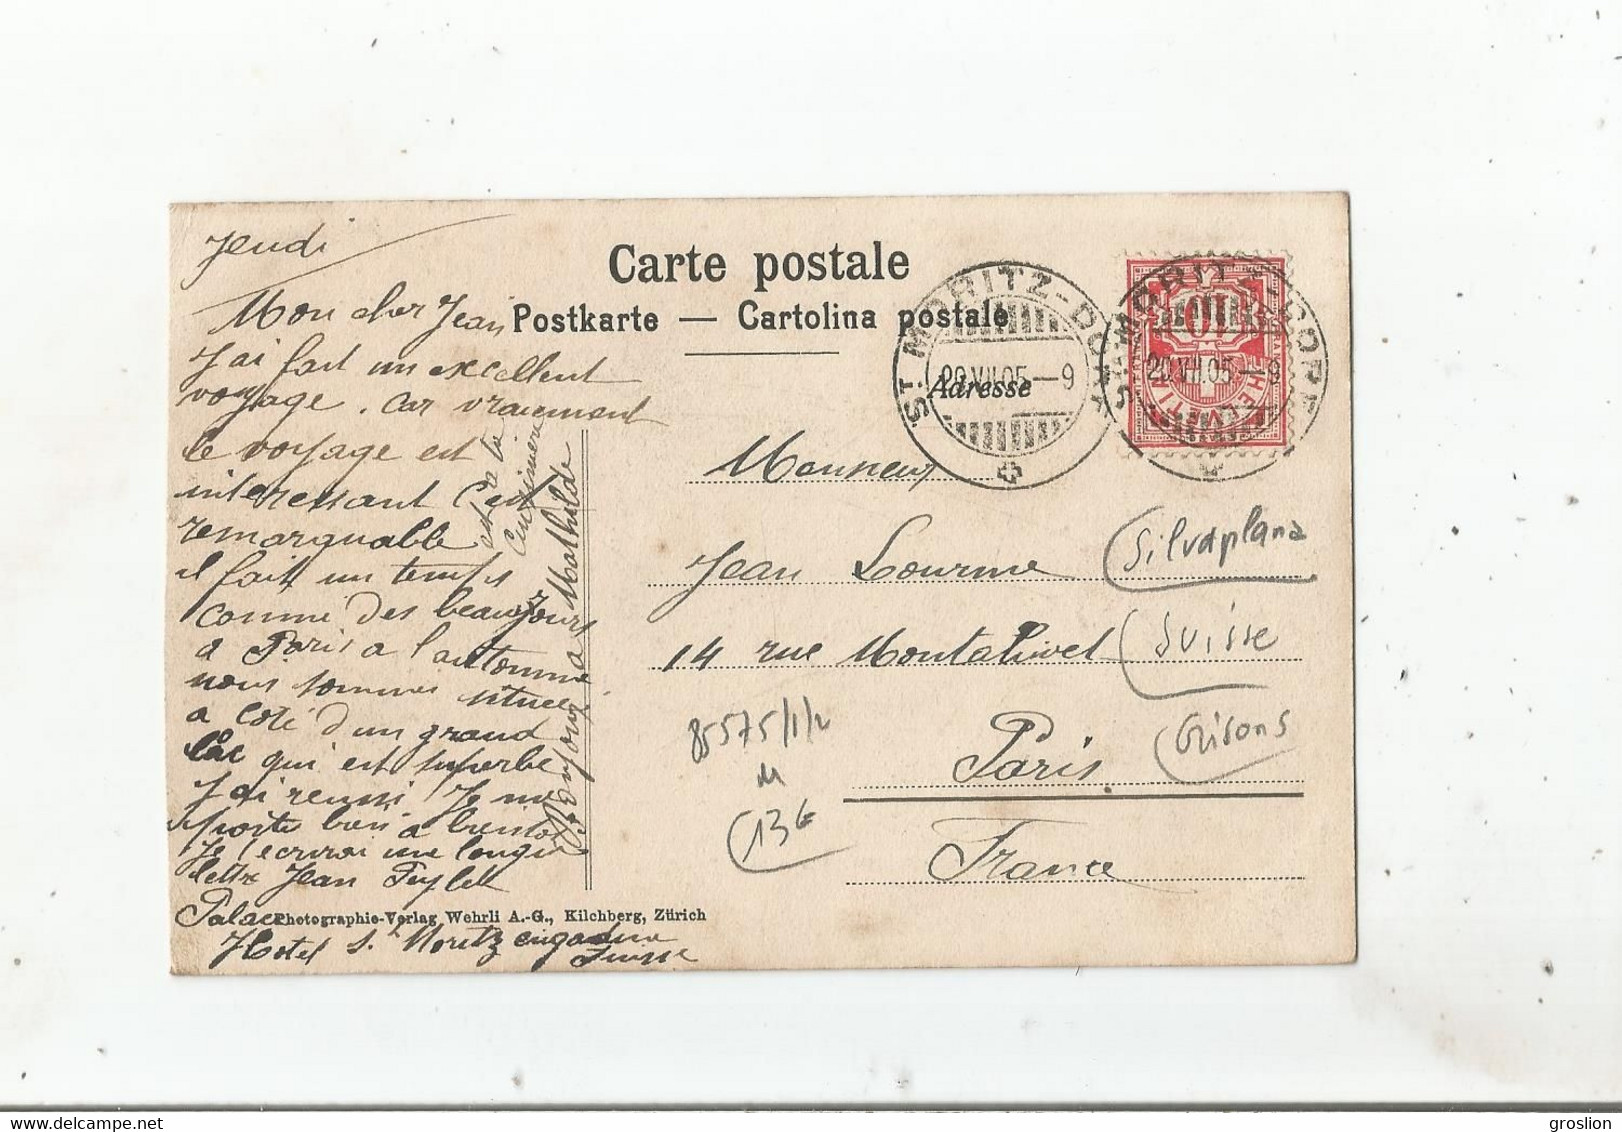 Jeudi
Carte postale
Postkarte — Cartolina postale
Adresse
ST MORITZ-DORF
20.VII.05—9
ST MORITZ-DORF
20.VII.05—9
Mon cher Jean
J'ai fait un excellent
voyage. Car vraiement
le voyage est
interessant
remarquable
il fait un temps
comme des beaux jours
a Paris a l'automne
nous sommes situés
a coté d'un grand
lac qui est superbe
J'ai reussi Je me
porte bien a bientot
Je t'ecrirai une longue
lettre Jean
Palace
Hotel St Moritz engadine
Suisse
Bonjour a Mathilde
Monsieur
Jean Lourme
14 rue Montalivet
Paris
France
Silvaplana
Suisse
Grisons
85575/1/2
13€
Photographie-Verlag Wehrli A.-G., Kilchberg, Zürich
groslion